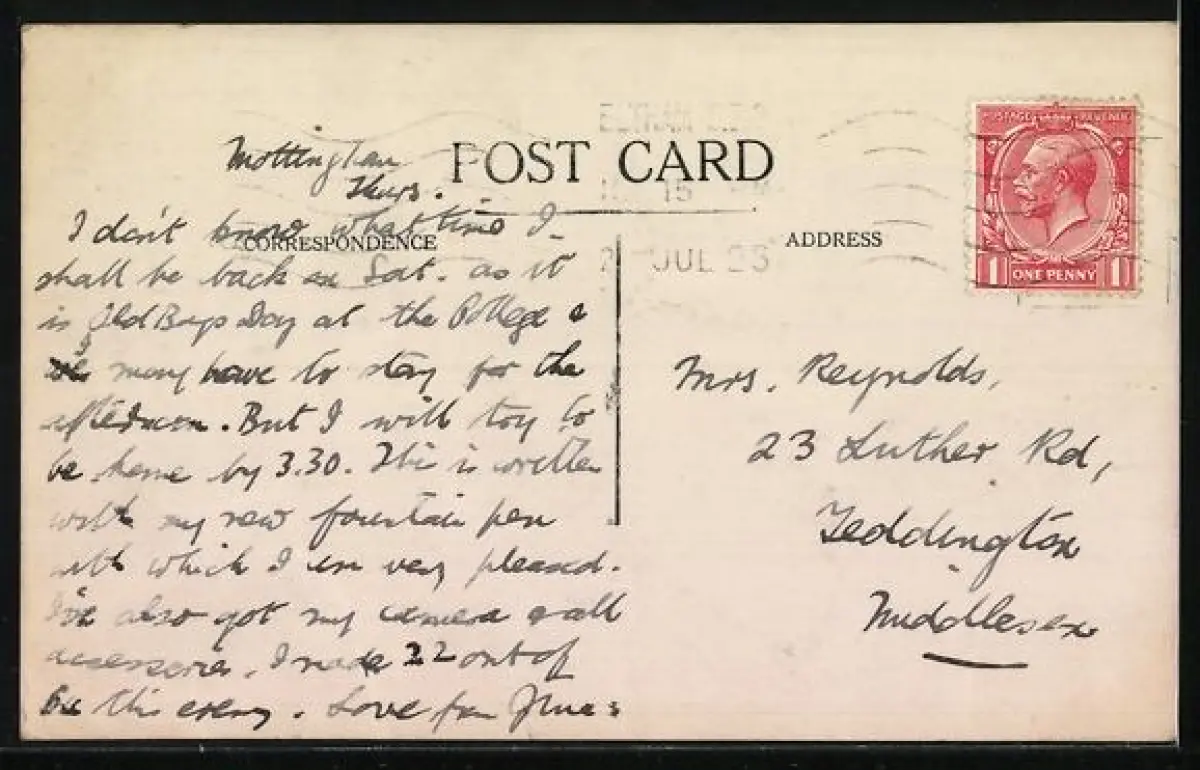 POST CARD
CORRESPONDENCE
ADDRESS
POSTAGE REVENUE
1 ONE PENNY 1
15
JUL 25
Mottingham
Thurs.
I don't know what time I
shall be back on Sat. as it
is Old Boys Day at the College &
we may have to stay for the
afternoon. But I will try to
be home by 3.30. This is written
with my new fountain pen
with which I am very pleased.
I've also got my camera & all
accessories. I made 22 out of
this eveng. Love from
Mrs. Reynolds,
23 Luther Rd,
Teddington
Middlesex